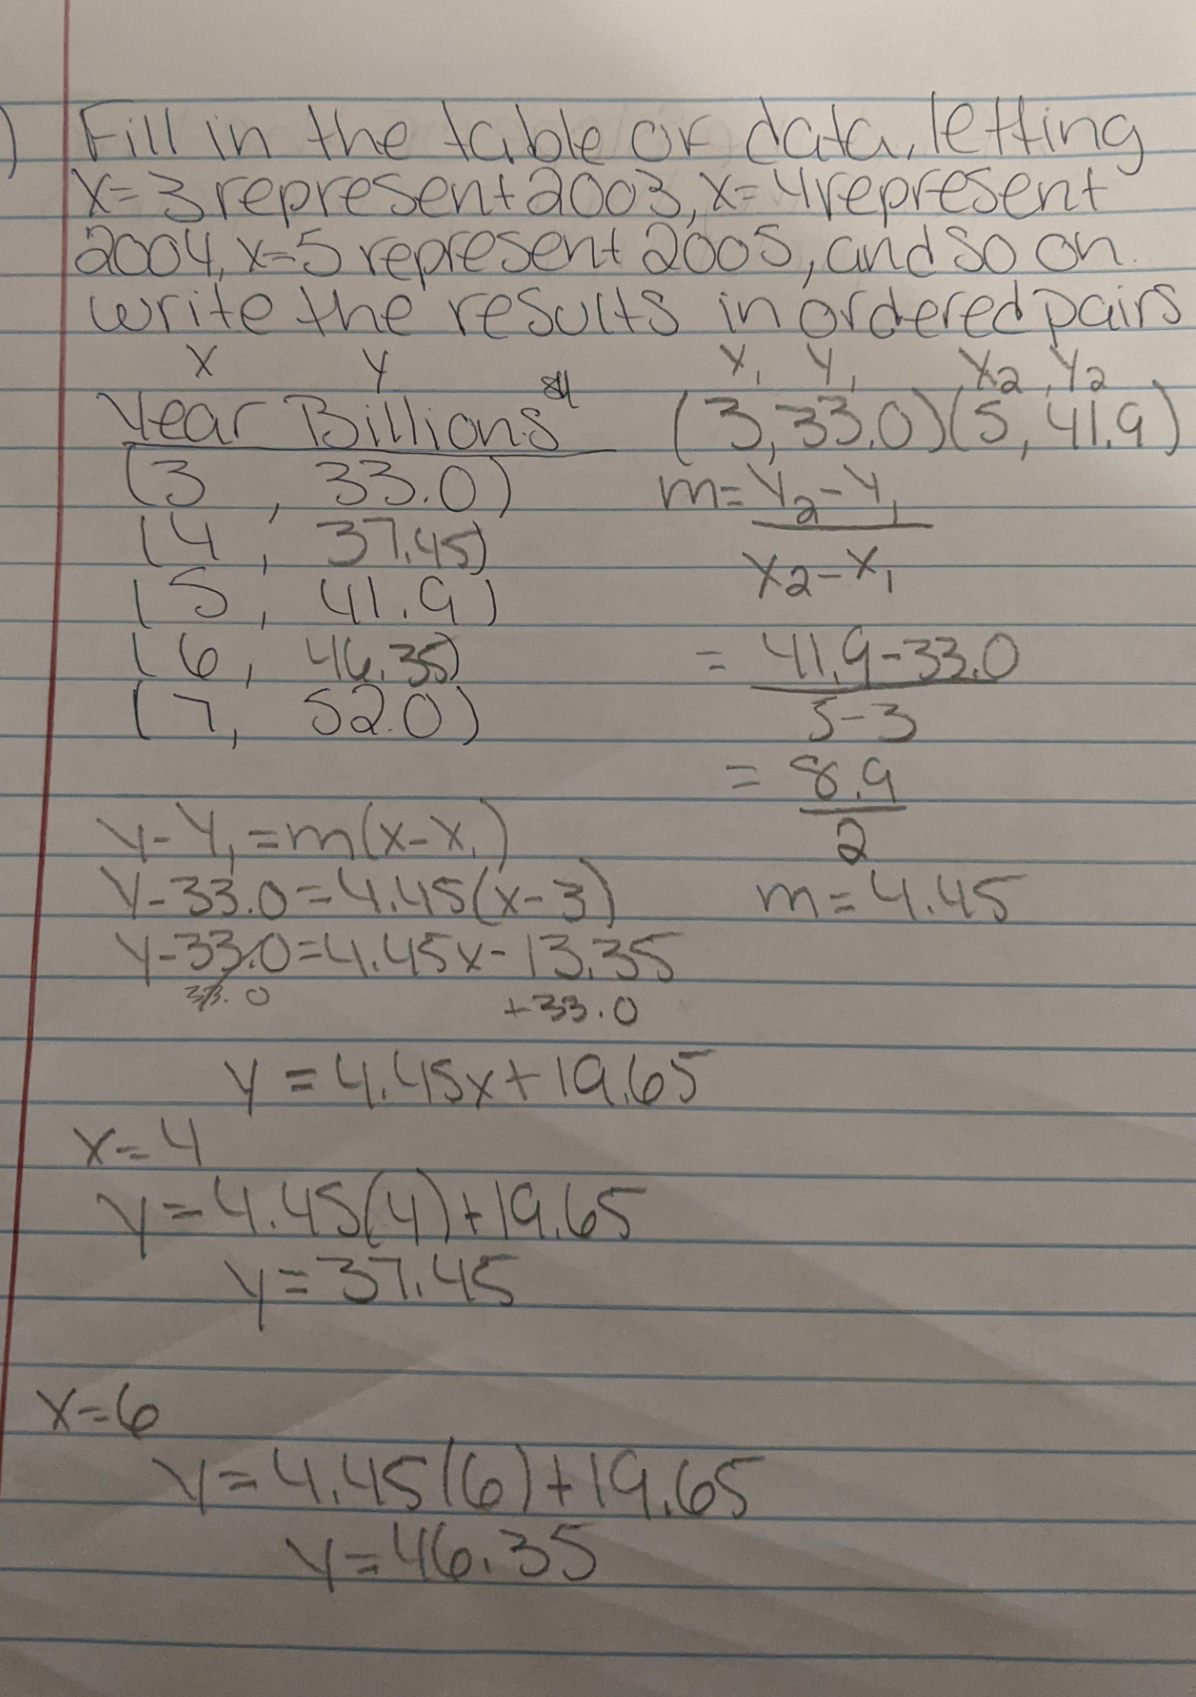 ) Fill in the table or data, letting
x=3 represent 2003, x=4 represent
2004, x=5 represent 2005, and so on.
write the results in ordered pairs
x y
Year Billions
(3 , 33.0)
(4 , 37.45)
(5 , 41.9)
(6 , 46.35)
(7, 52.0)
x₁ y₁ x₂, y₂
(3, 33.0)(5, 41.9)
m= y₂-y₁
x₂-x₁
= 41.9-33.0
5-3
= 8.9
2
m=4.45
y-y₁=m(x-x₁)
y-33.0=4.45(x-3)
y-33.0=4.45x-13.35
33.0 +33.0
y=4.45x+19.65
x=4
y=4.45(4)+19.65
y=37.45
x=6
y=4.45(6)+19.65
y=46.35